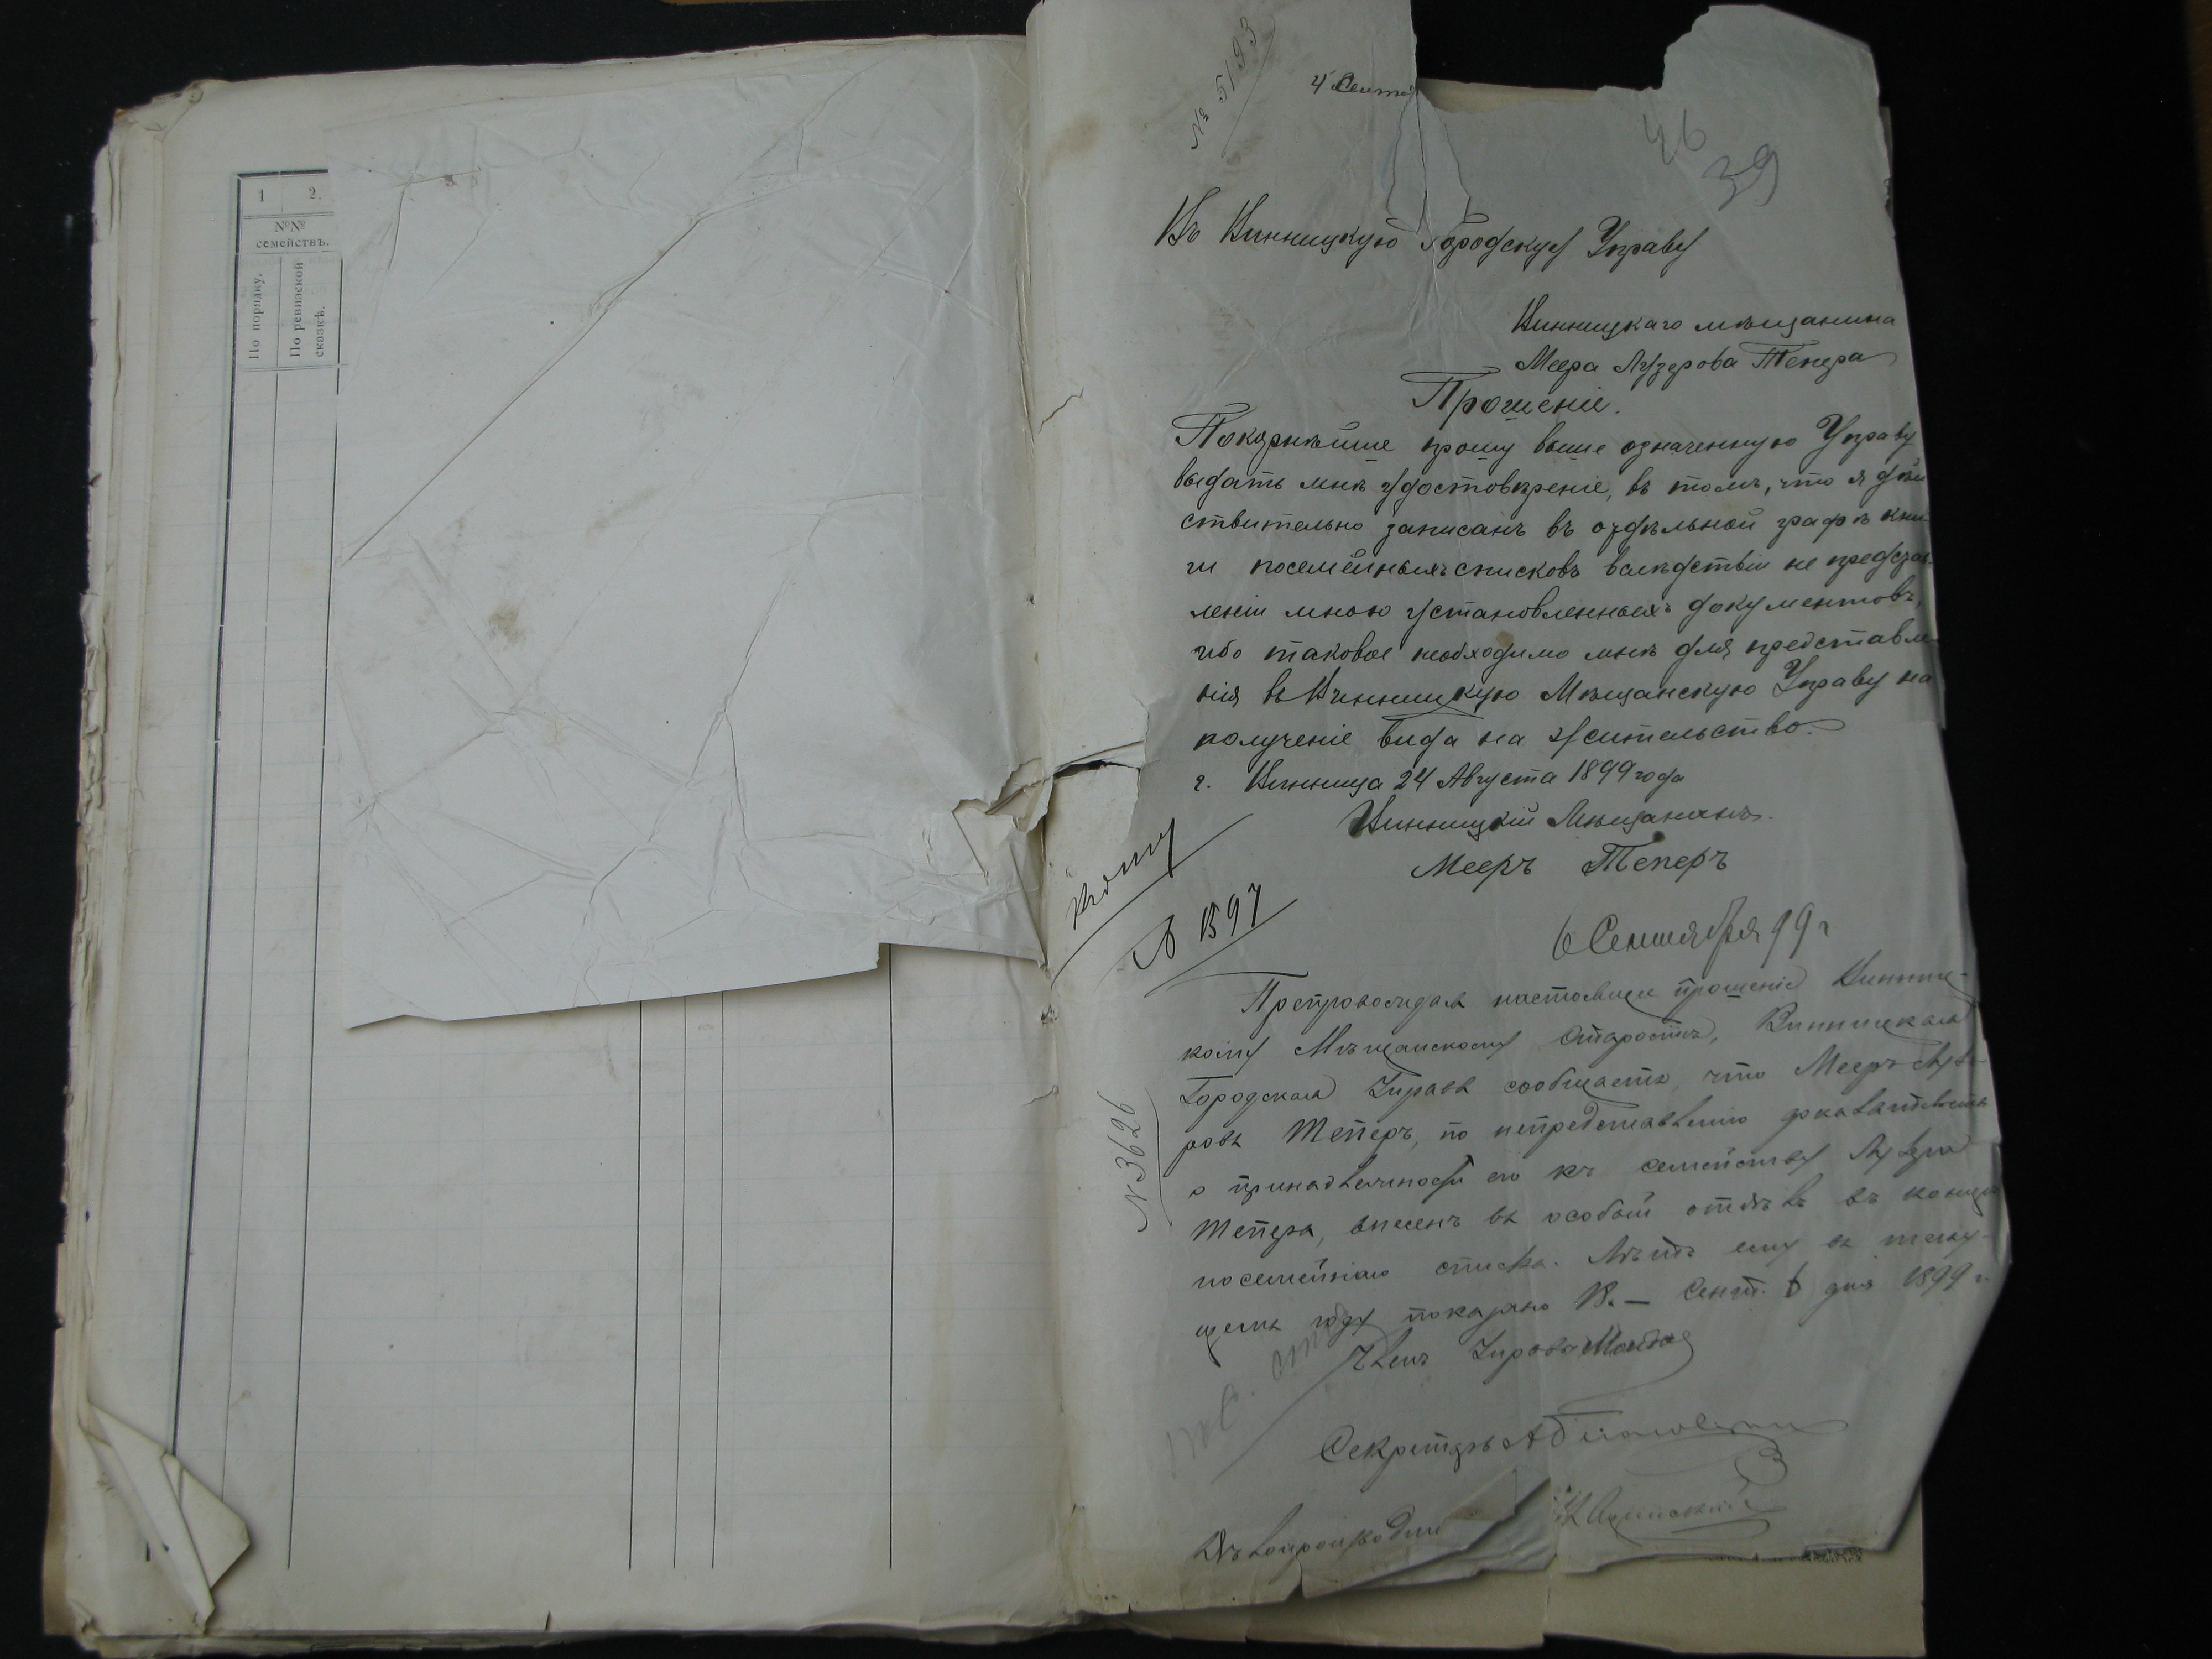 1
2.
№№
семействъ.
По порядку.
По ревизской
сказкѣ.
№ 5193
4 Сентяб
46
39
Въ Винницкую Городскую Управу
Винницкаго мѣщанина
Меера Лузерова Тепера
Прошеніе.
Покорнѣйше прошу выше означенную Управу
выдать мнѣ удостовѣреніе, въ томъ, что я дѣй
ствительно записанъ въ отдѣльной графѣ кни-
ги посемейныхъ списковъ вслѣдствіи не представ-
леніи мною установленныхъ документовъ,
ибо таковое необходимо мнѣ для представле-
нія въ Винницкую Мѣщанскую Управу на
полученіе вида на жительство.
г. Винница 24 Августа 1899 года
Винницкій Мѣщанинъ.
Мееръ Теперъ
6 Сентября 99 г
№ 1597
Препровождая настоящее прошеніе Винниц-
кому Мѣщанскому Старостѣ, Винницкая
Городская Управа сообщаетъ, что Мееръ Лузе-
ровъ Теперъ, по непредставленію доказательствъ
о принадлежности его къ семейству Лузера
Тепера, внесенъ въ особый отдѣлъ въ концѣ
посемейнаго списка. Лѣтъ ему въ теку-
щемъ году показано 18. — Сент. 6 дня 1899 г.
№ 3626
Членъ Управы
Секретарь
Дѣлопроизводи